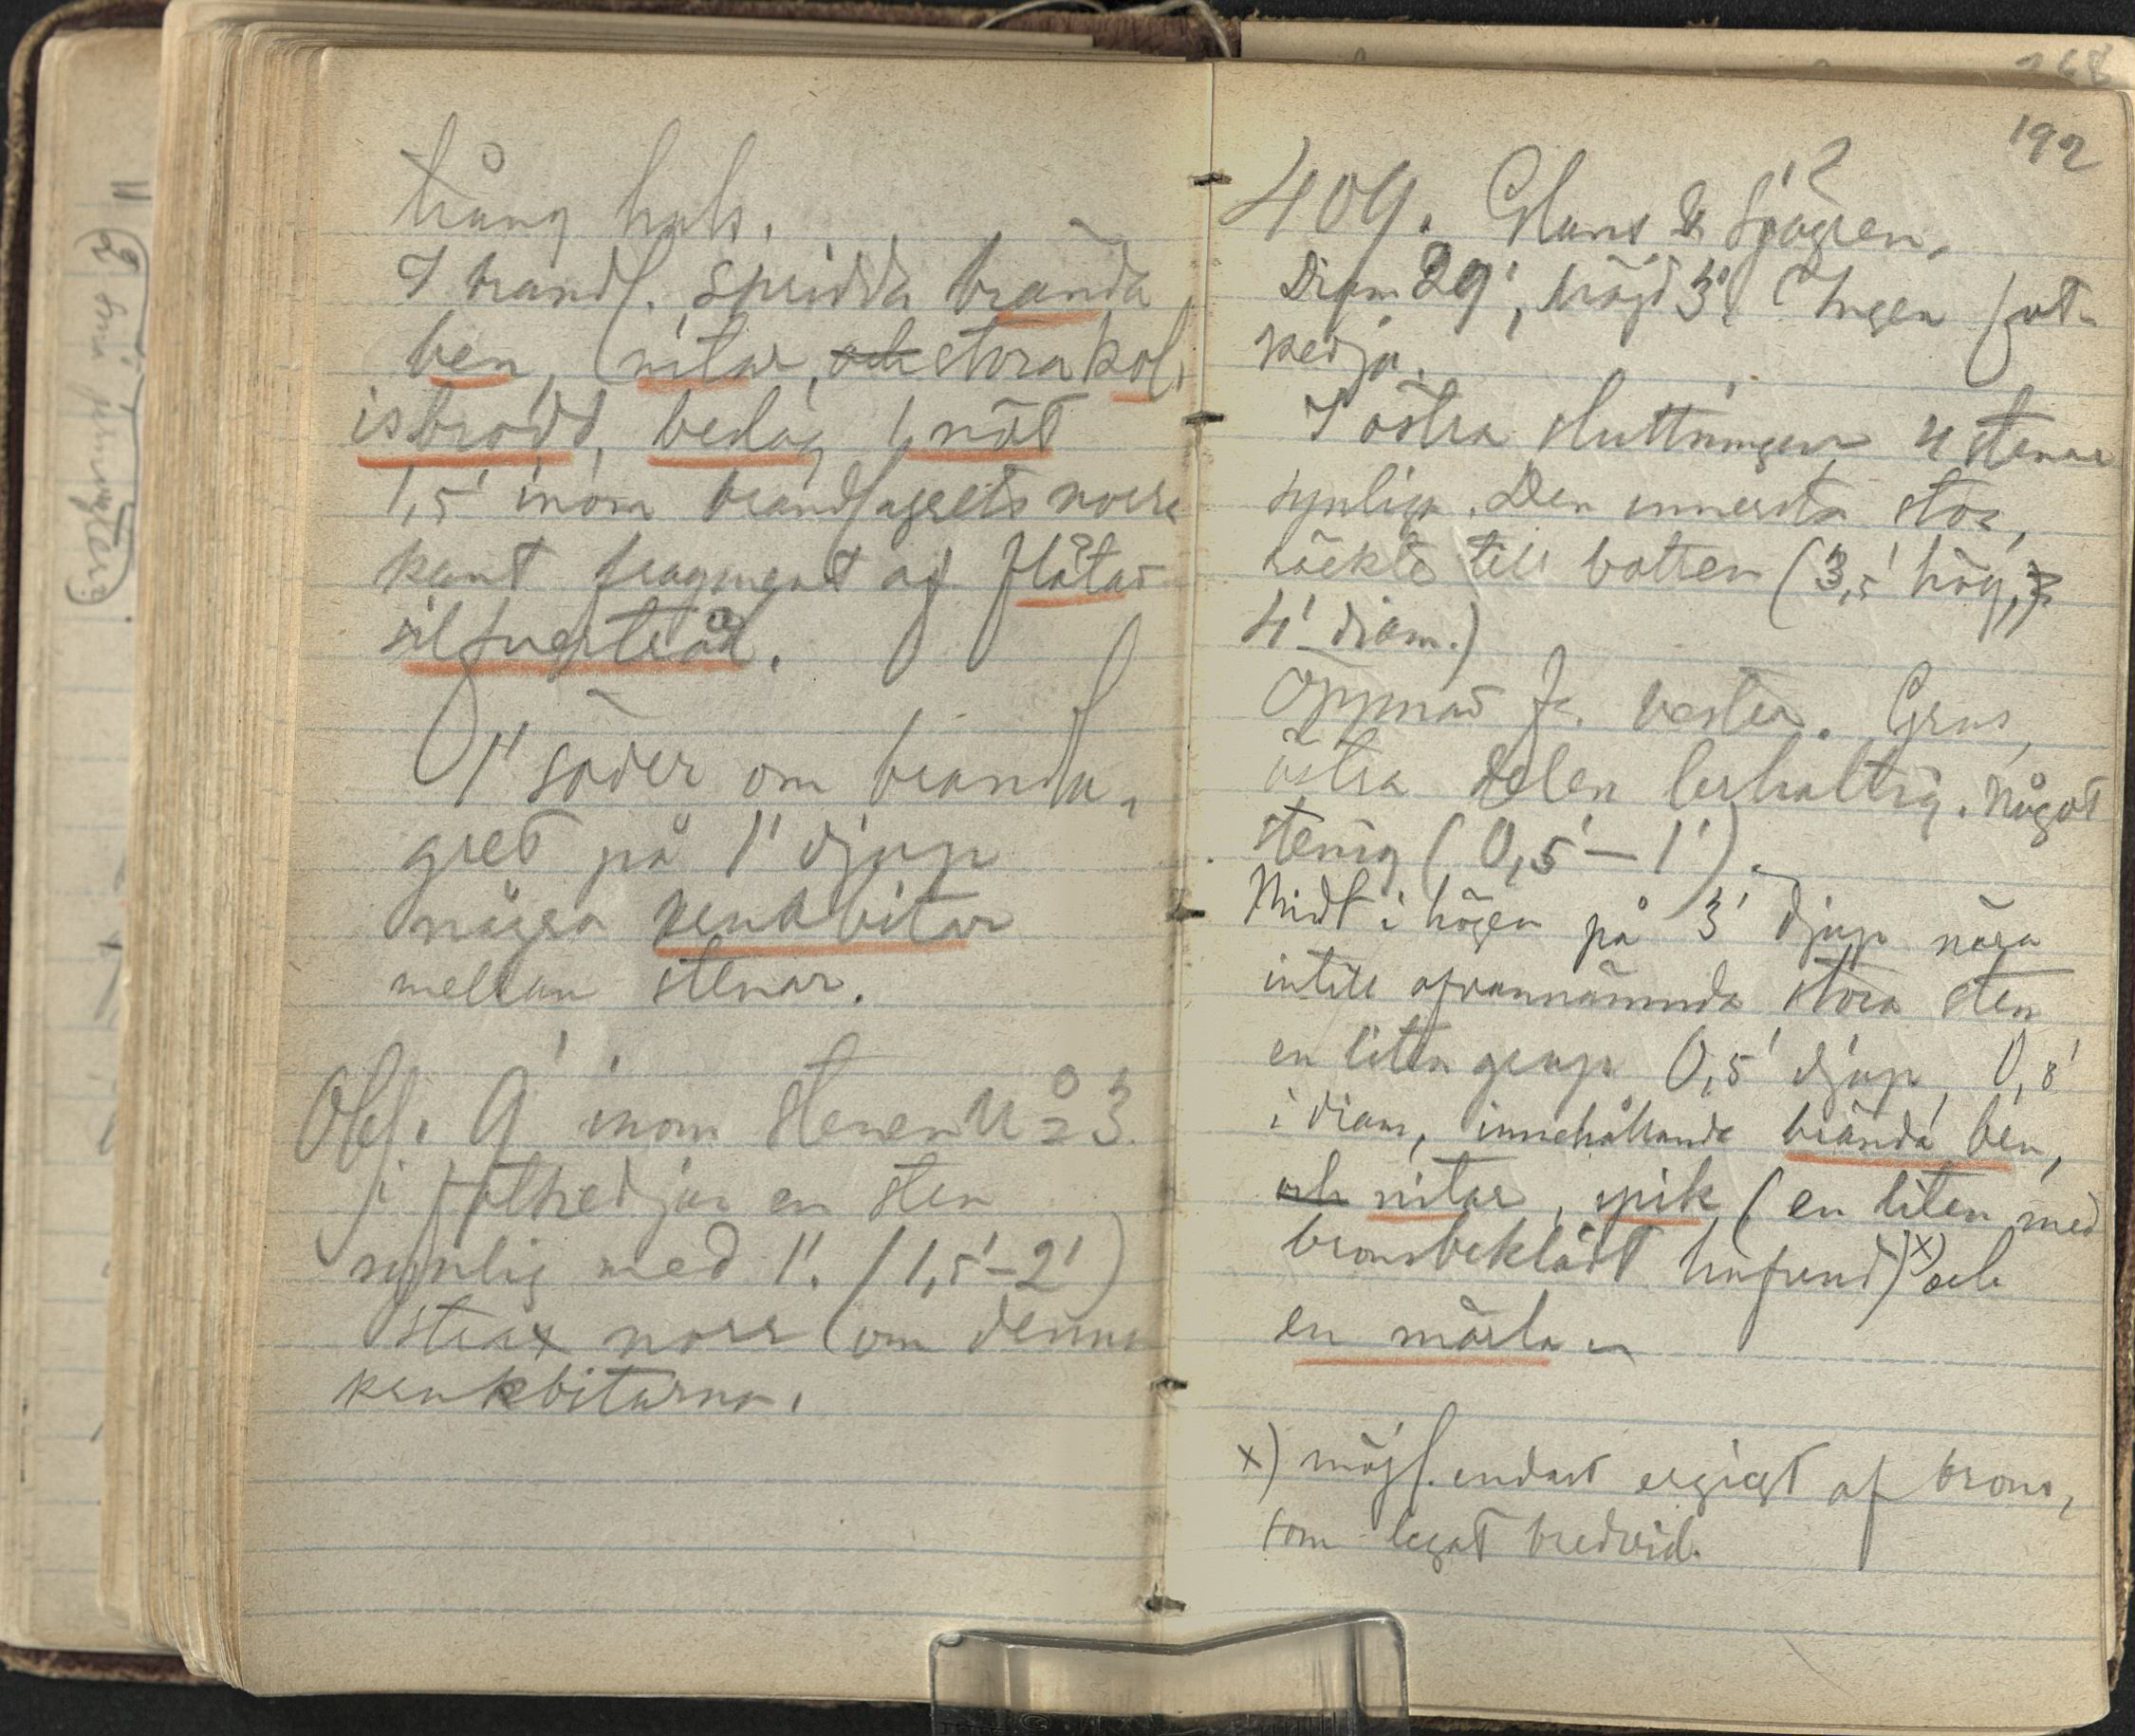 trång hals.
I brandl. spridda brända
ben, nitar, och stora kol,
isbrodd, beslag, 1 nöt
1,5' inom brandlagrets norra
kant fragment af flätad
silfvertråd.
1' söder om branda-
gret på 1' djup
några krukbitar
mellan stenar.
Obs. 9' inom stenen No 3
i fotkedjan en sten
synlig med 1'. (1,5'-2')
strax norr om denna
krukbitarna.
192
409. Glans
Diam 29', höjd 3'. Ingen fot-
kedja.
I östra sluttningen 4 stenar
synliga. Den innersta stor,
räckte till botten (3,5' hög,
4' diam.)
Öppnad fr. vester. Grus,
östra delen lerhaltig. Något
stenig (0,5'-1').
Midt i högen på 3' djup nära
intill ofvannämnda stora sten
en liten grop 0,5' djup, 0,8'
i diam, innehållande brända ben,
och nitar, spik (en liten med
bronsbeklädt hufvud) x) och
en märla
x) möjl. endast ergigt af brons,
som legat bredvid.